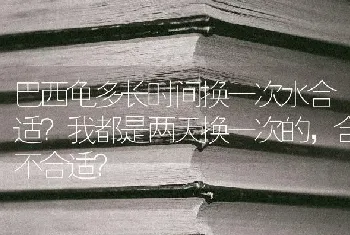 巴西龟多长时间换一次水合
适？我都是两天换一次的，合
不合适？